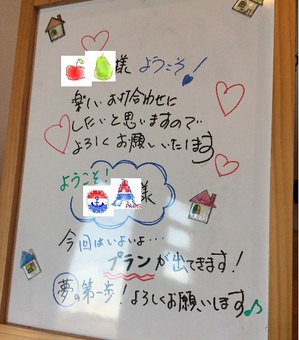 様 ようこそ!
楽しい お打合わせに
したいと思いますので
よろしくお願いいたします
ようこそ!
様
今回はいよいよ…
プランが出てきます!
夢の第一歩!よろしくお願いします♪